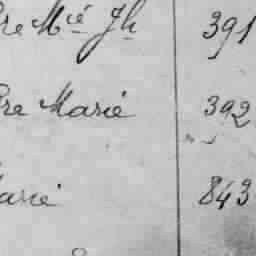 re Mié Jh 391
re Marié 392
arié 843